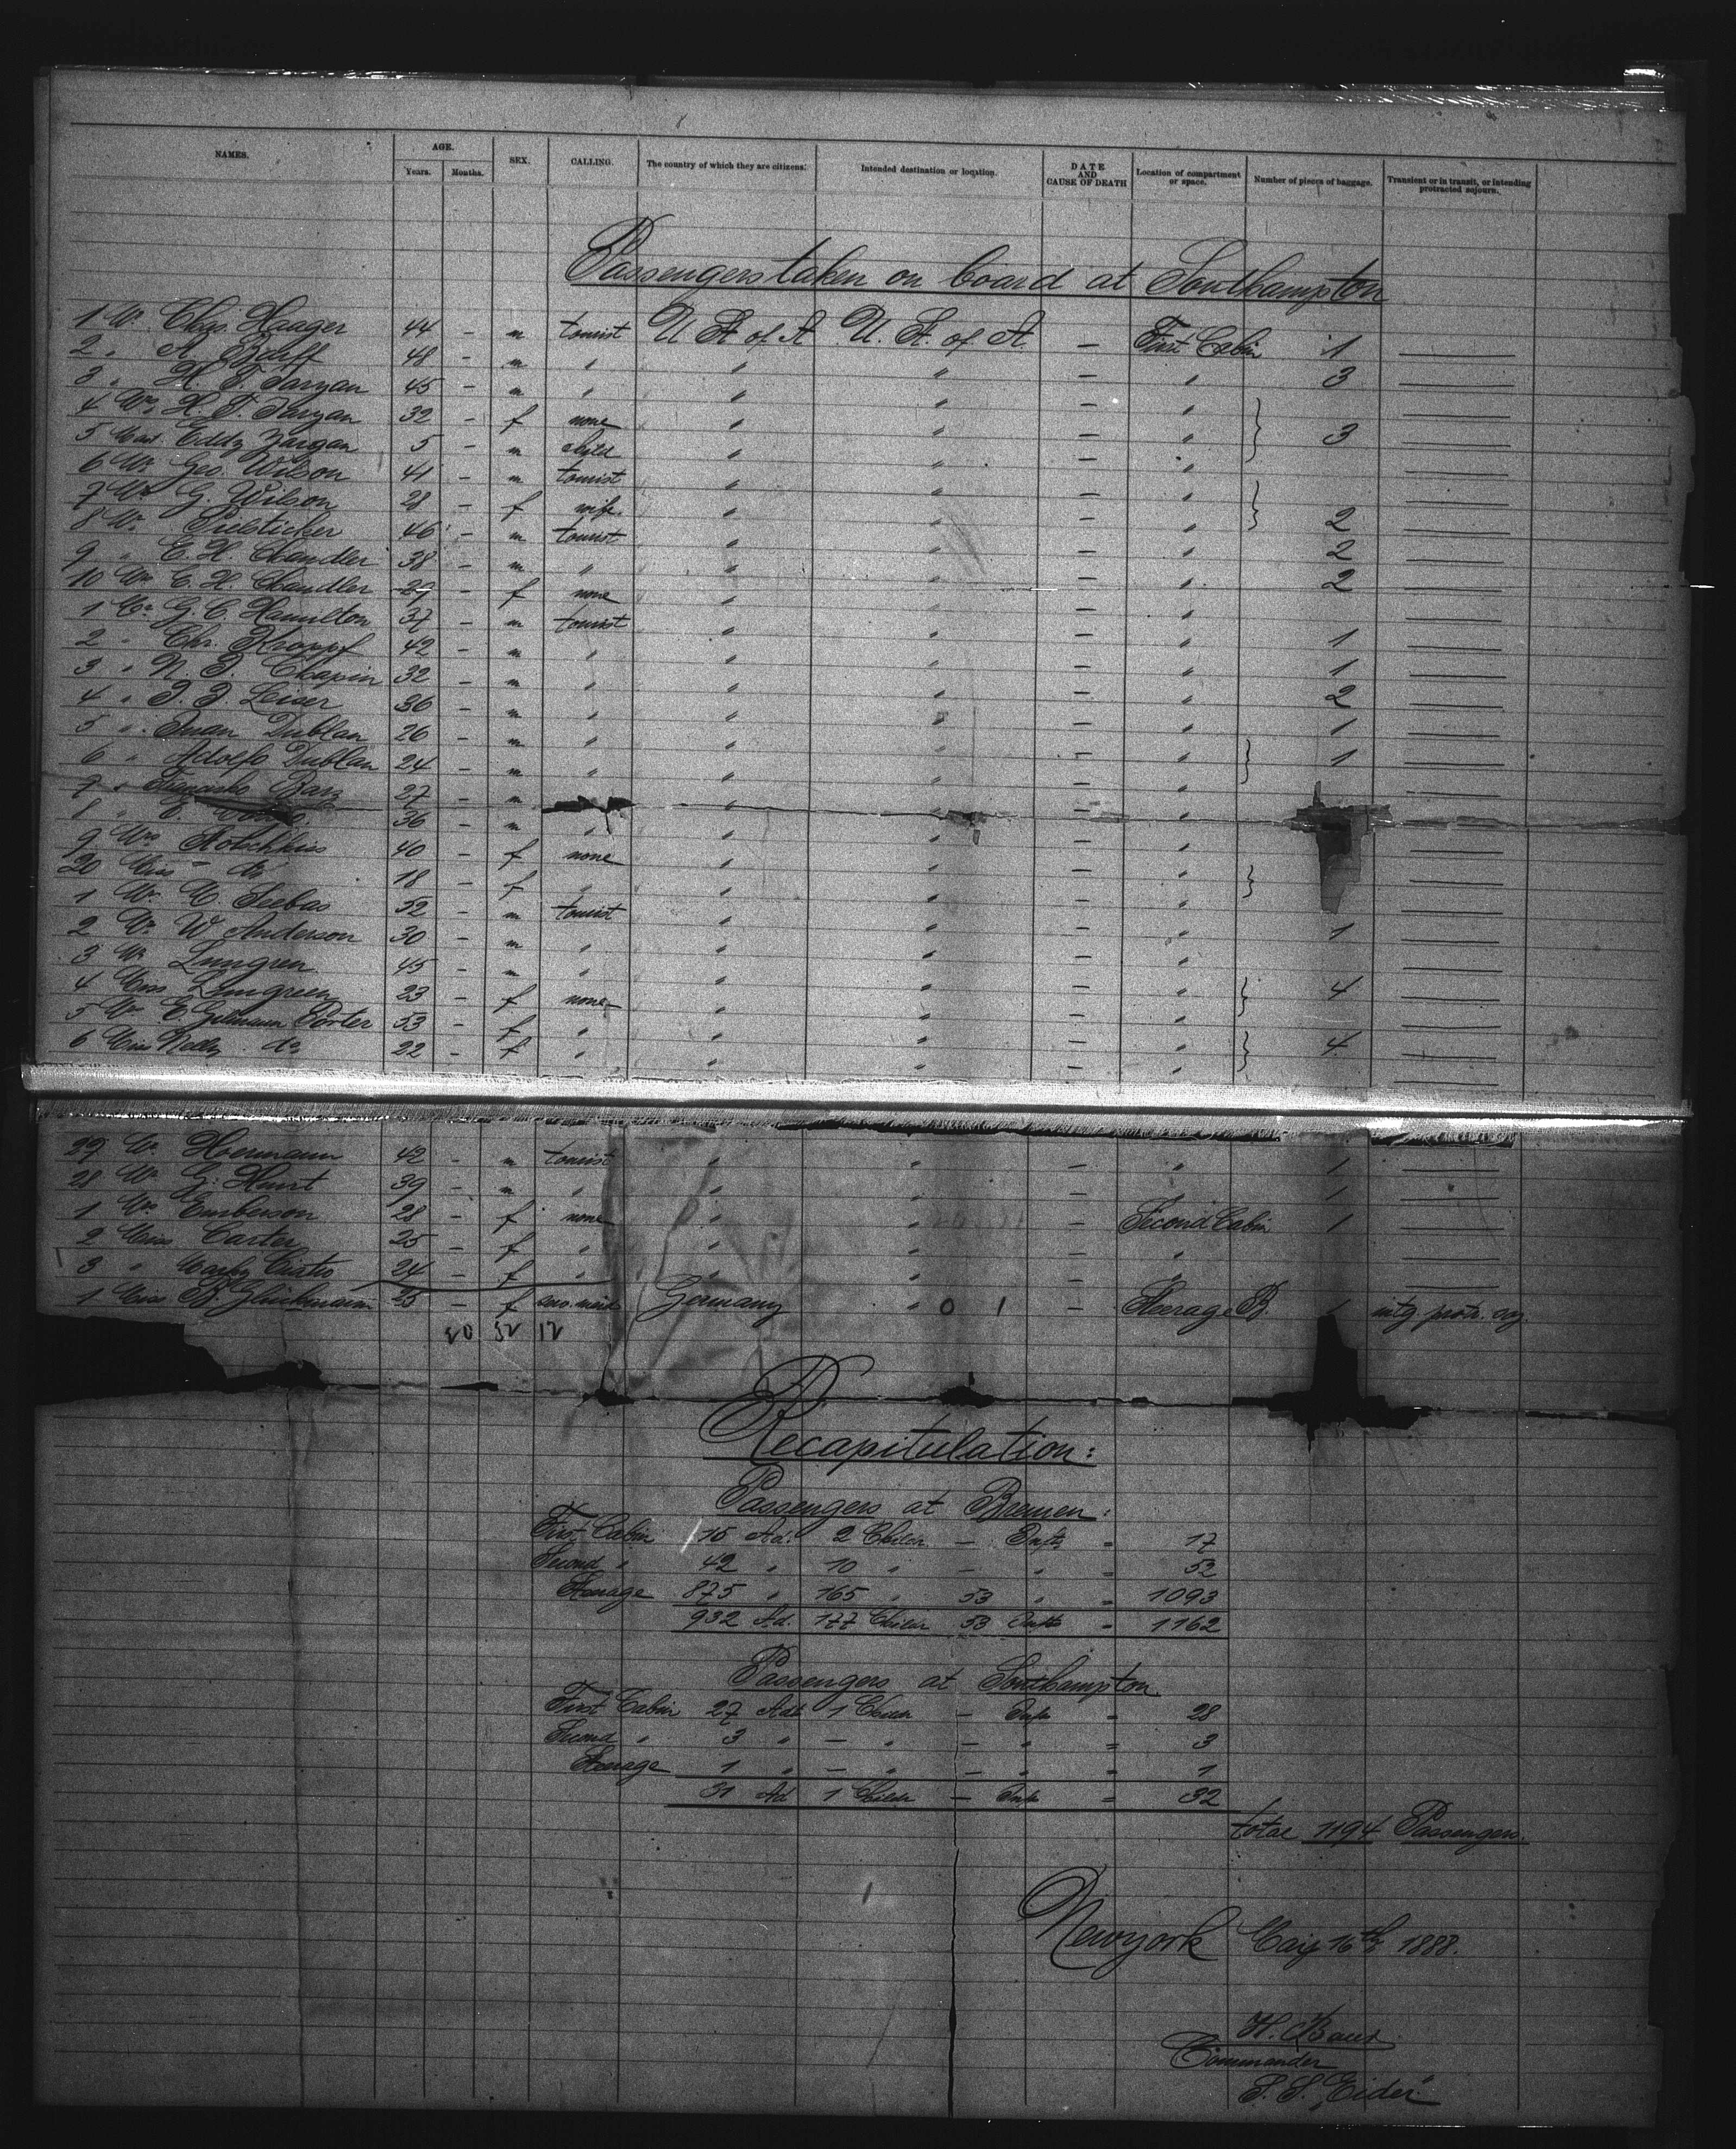 NAMES. AGE. SEX. CALLING. The country of which they are citizens. Intended destination or location. DATE AND CAUSE OF DEATH Location of compartment or space. Number of pieces of baggage. Transient or in transit, or intending protracted sojourn.
Years. Months.
Passengers taken on board at Southampton
1 Mr. Chas. Haager 44 - m tourist U St of A U. St. of A. - First Cabin 1
2 " A. 48 - m " " " - " 3
3 " H. T. Yaryan 45 - m " " " - "
4 Mrs H. T. Yaryan 32 - f none " " - " 3
5 Mast. Eddy Yargan 5 - m child " " - "
6 Mr. Geo. Wilson 41 - m tourist " " - "
7 Mrs G. Wilson 28 - f wife " " - " 2
8 Mr. Pielsticker 46 - m tourist " " - " 2
9 " C. H. Chandler 38 - m " " " - " 2
10 Mrs C. H. Chandler 27 - f none " " - "
1 Mr. G. C. Hamilton 37 - m tourist " " - " 1
2 " Chr. Kropff 42 - m " " " - " 1
3 " N. J. Chapin 32 - m " " " - " 2
4 " J. J. Leiser 36 - m " " " - " 1
5 " Juan Dublan 26 - m " " " - "
6 " Adolfo Dublan 24 - m " " " - " 1
7 " 27 - m " " - "
8 " 36 - m " " " - "
9 Mrs Hotchkiss 40 - f none " " - "
20 Miss - do 18 - f " " " - "
1 Mr. Seebas 52 - m tourist " " - "
2 Mr. W Anderson 30 - m " " " - " 1
3 Mr. Lungren 45 - m " " " - "
4 Miss Lungreen 23 - f none " " - " 4
5 E Gilmann Porter 53 - f " " " - "
6 Miss Nelly do 22 - f " " " - " 4
27 Mr. Hermann 42 - m tourist " " - " 1
28 Mr. G. Hunt 39 - m " " " - " 1
1 Mrs Emberson 28 - f none " " - Second Cabin 1
2 Miss Carter 25 - f " " " - "
3 " 24 - f " " " - "
1 Miss B. Glückmann 25 - f Germany " 0 1 - Steerage B. 1 intg protr. soj.
20 32 12
Recapitulation:
Passengers at Bremen:
First Cabin 15 Ad. 2 Childr. - Infts = 17
Second " 42 " 10 " - " = 52
Steerage 875 " 165 " 53 " = 1093
932 Ad. 177 Childr 53 Infts = 1162
Passengers at Southampton
First Cabin 27 Adt 1 Childr - Infts = 28
Second " 3 " - " - " = 3
Steerage 1 " - " - " = 1
31 Ad 1 Childr - Infts = 32
total 1194 Passengers.
Newyork May 16th 1888.
H. Baur
Commander
S. S. "Eider"